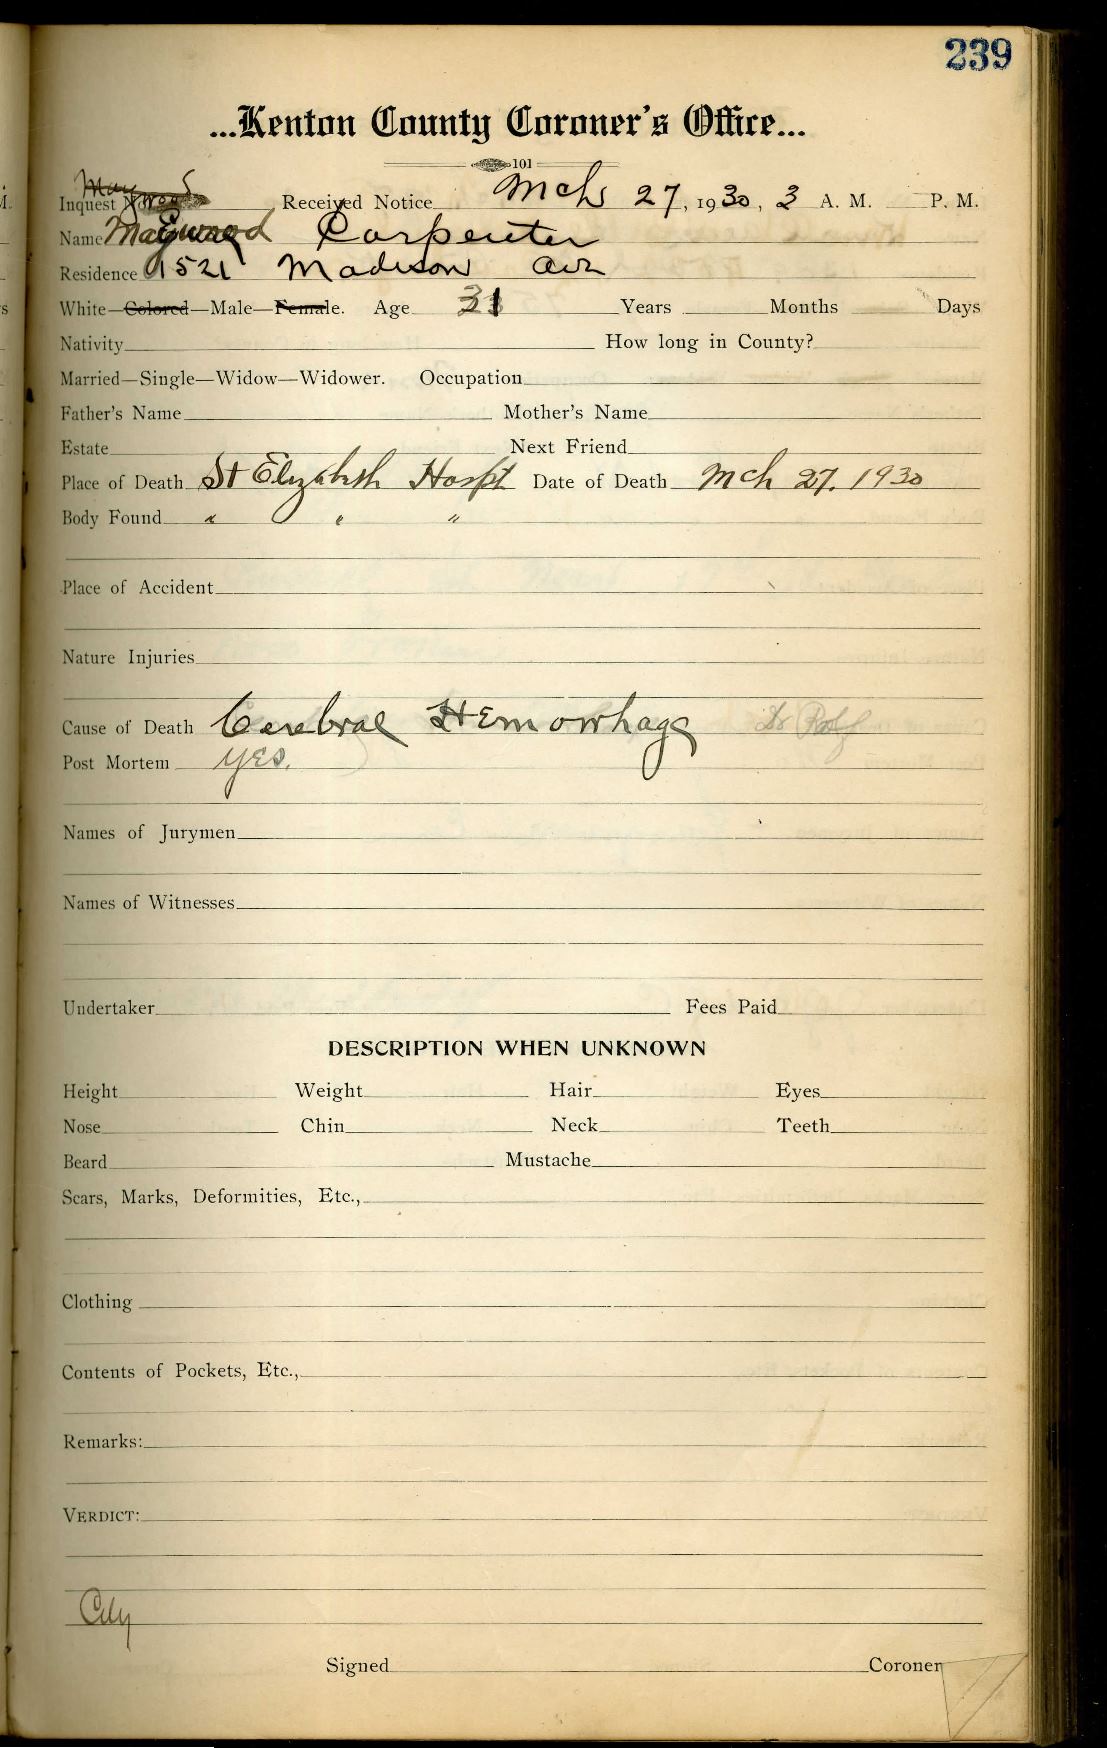 239
...Kenton County Coroner's Office...
101
Maywood
Inquest No. Received Notice Mch 27, 1930, 3 A. M. P. M.
Name Maywood Carpenter
Residence 1521 Madison Ave
White—Colored—Male—Female. Age 31 Years Months Days
Nativity How long in County?
Married—Single—Widow—Widower. Occupation
Father's Name Mother's Name
Estate Next Friend
Place of Death St Elizabeth Hospt Date of Death Mch 27. 1930
Body Found " " "
Place of Accident
Nature Injuries
Cause of Death Cerebral Hemorrhage Dr
Post Mortem yes.
Names of Jurymen
Names of Witnesses
Undertaker Fees Paid
DESCRIPTION WHEN UNKNOWN
Height Weight Hair Eyes
Nose Chin Neck Teeth
Beard Mustache
Scars, Marks, Deformities, Etc.,
Clothing
Contents of Pockets, Etc.,
Remarks:
VERDICT:
City
Signed Coroner